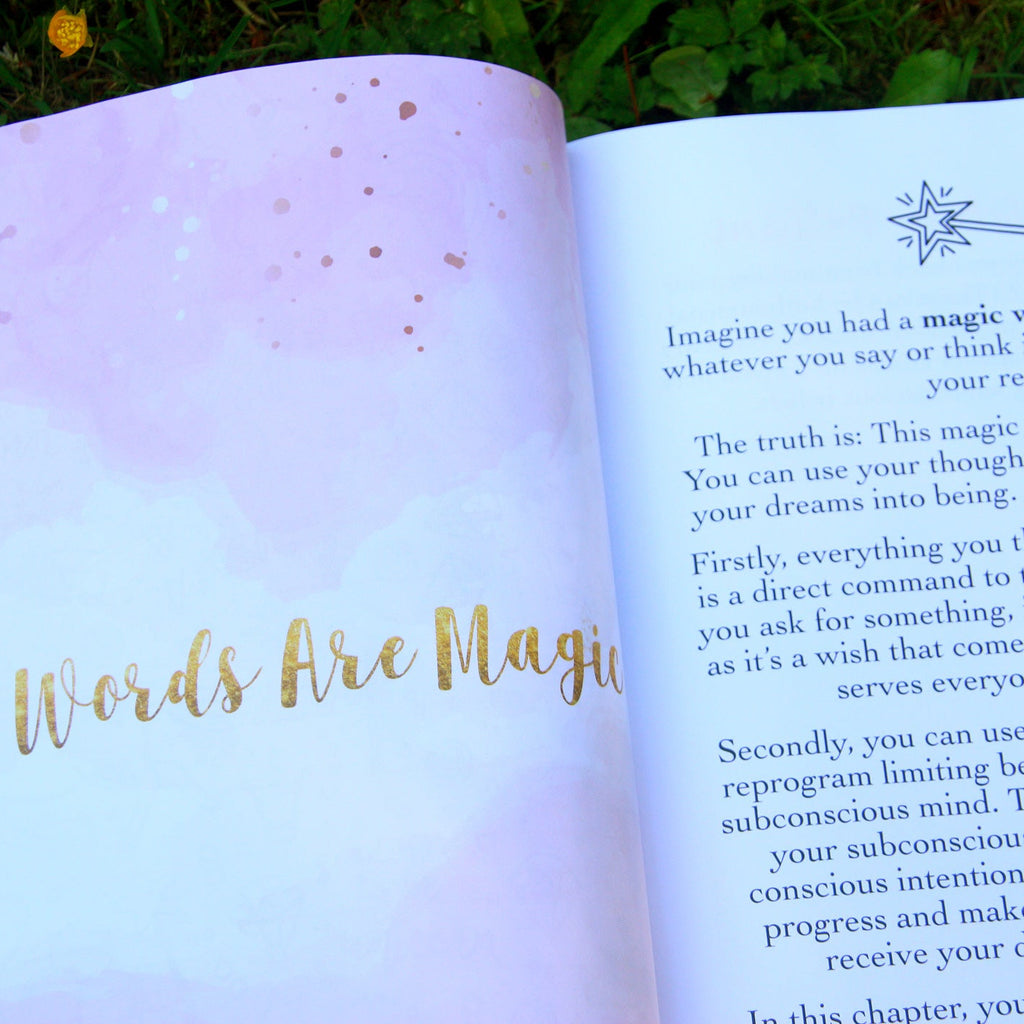 Words Are Magic
Imagine you had a magic
whatever you say or think
your
The truth is: This magic
You can use your
your dreams into being.
Firstly, everything you
is a direct command to
you ask for something,
as it's a wish that
serves
Secondly, you can use
reprogram limiting
subconscious mind.
your
conscious
progress and
receive your
In this chapter, you